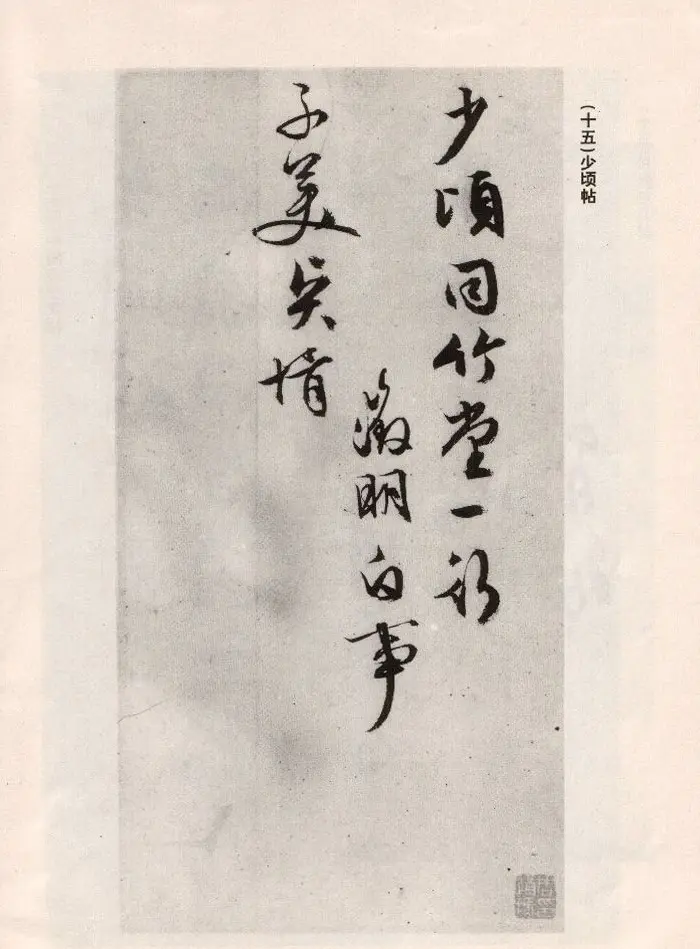 (十五)少顷帖
少頃同竹堂一行
徵明白事
子美